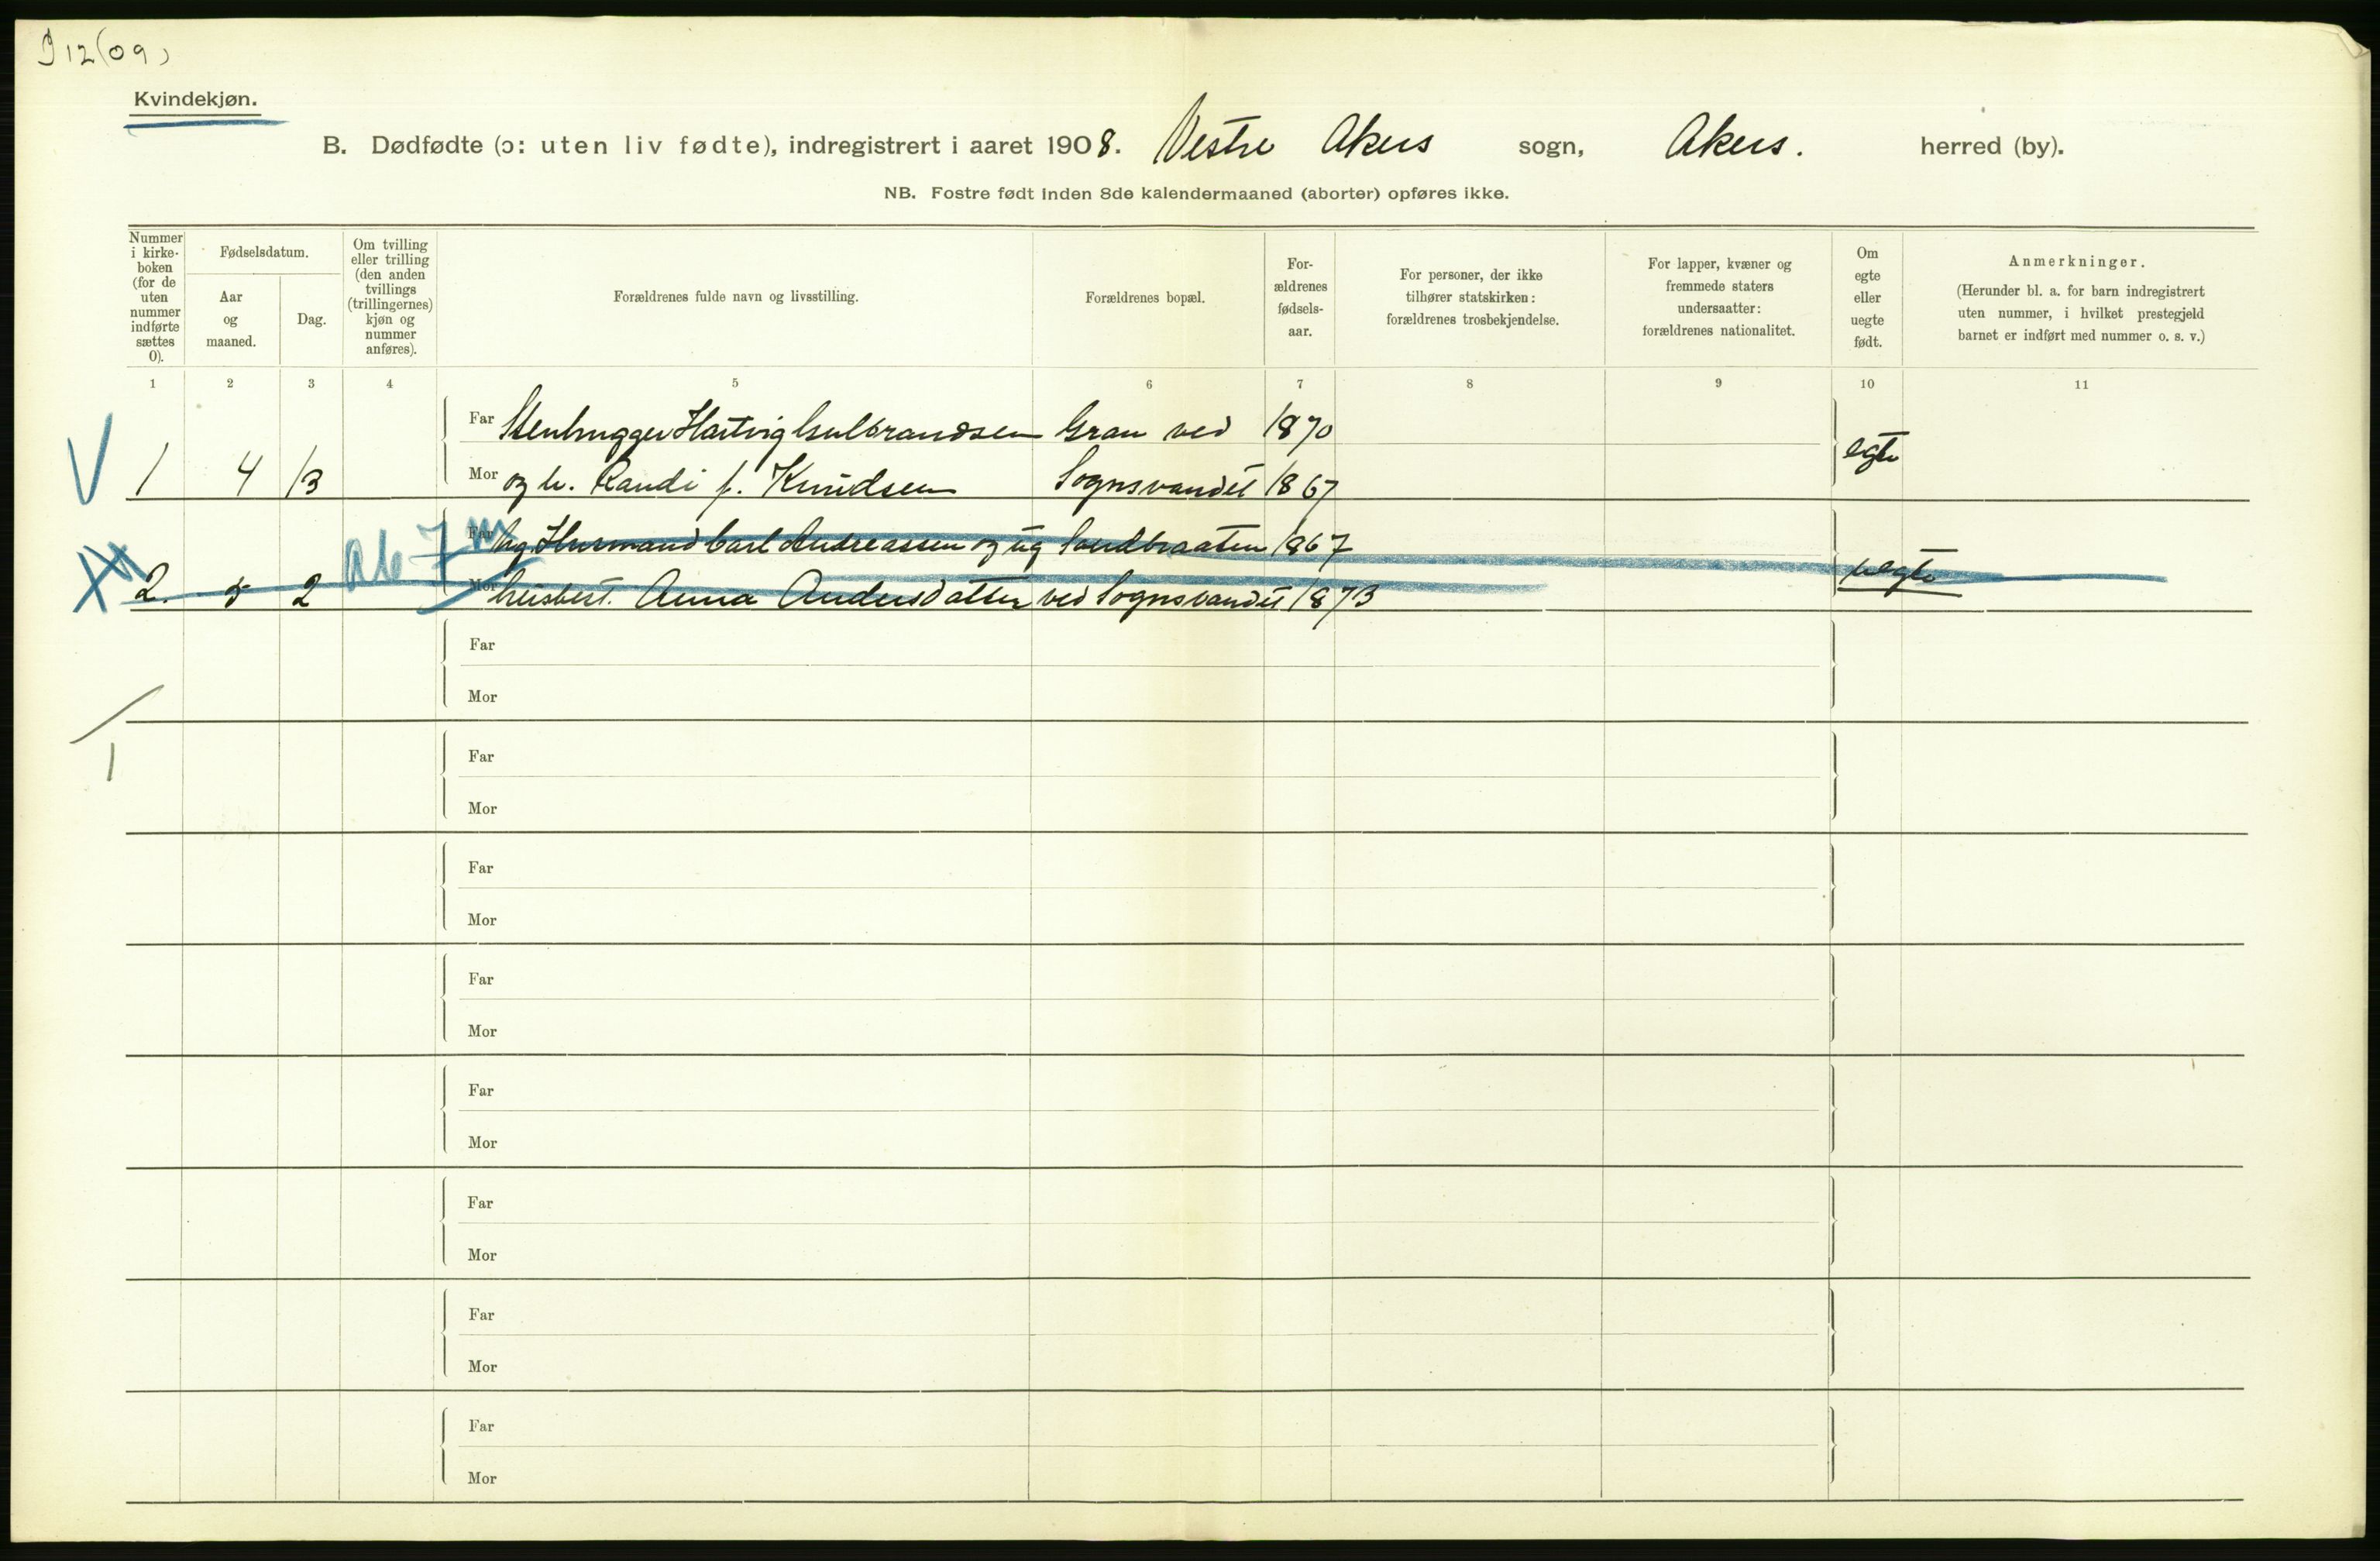 J 12(09)
Kvindekjøn.
B. Dødfødte (ɔ: uten liv fødte), indregistrert i aaret 1908. Vestre Akers sogn, Akers. herred (by).
NB. Fostre født inden 8de kalendermaaned (aborter) opføres ikke.
Nummer i kirke-boken (for de uten nummer indførte sættes 0).
Fødselsdatum.
Aar og maaned.
Dag.
Om tvilling eller trilling (den anden tvillings (trillingernes) kjøn og nummer anføres).
Forældrenes fulde navn og livsstilling.
Forældrenes bopæl.
For-ældrenes fødsels-aar.
For personer, der ikke tilhører statskirken: forældrenes trosbekjendelse.
For lapper, kvæner og fremmede staters undersaatter: forældrenes nationalitet.
Om egte eller uegte født.
Anmerkninger.
(Herunder bl. a. for barn indregistrert uten nummer, i hvilket prestegjeld barnet er indført med nummer o. s. v.)
1 2 3 4 5 6 7 8 9 10 11
Far Stenhugger Hartvig Gulbrandsen Gran ved 1870
V 1 4 13 Mor og h. Randi f. Knudsen Sognsvandet 1867 egte
Ab 7 m Far Ug Husmand Carl Andreassen og ug Sandbraaten 1867
2. 5 2 Mor husbest. Anna Andersdatter ved Sognsvandet 1873 uegte
Far
Mor
1
Far
Mor
Far
Mor
Far
Mor
Far
Mor
Far
Mor
Far
Mor
Far
Mor